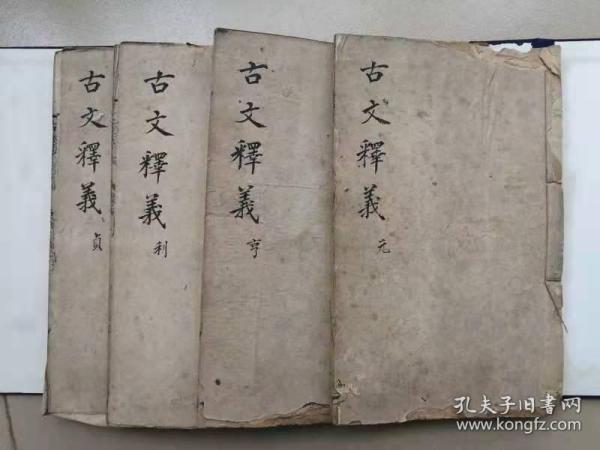 古文釋義
元
古文釋義
亨
古文釋義
利
古文釋義
貞
孔夫子旧书网
www.kongfz.com